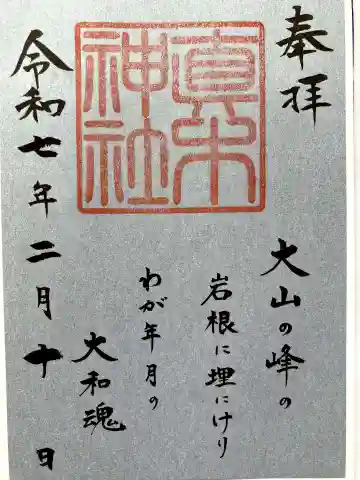 奉拝
眞木
神社
大山の峰の
岩根に埋にけり
わが年月の
大和魂
令和七年二月十日